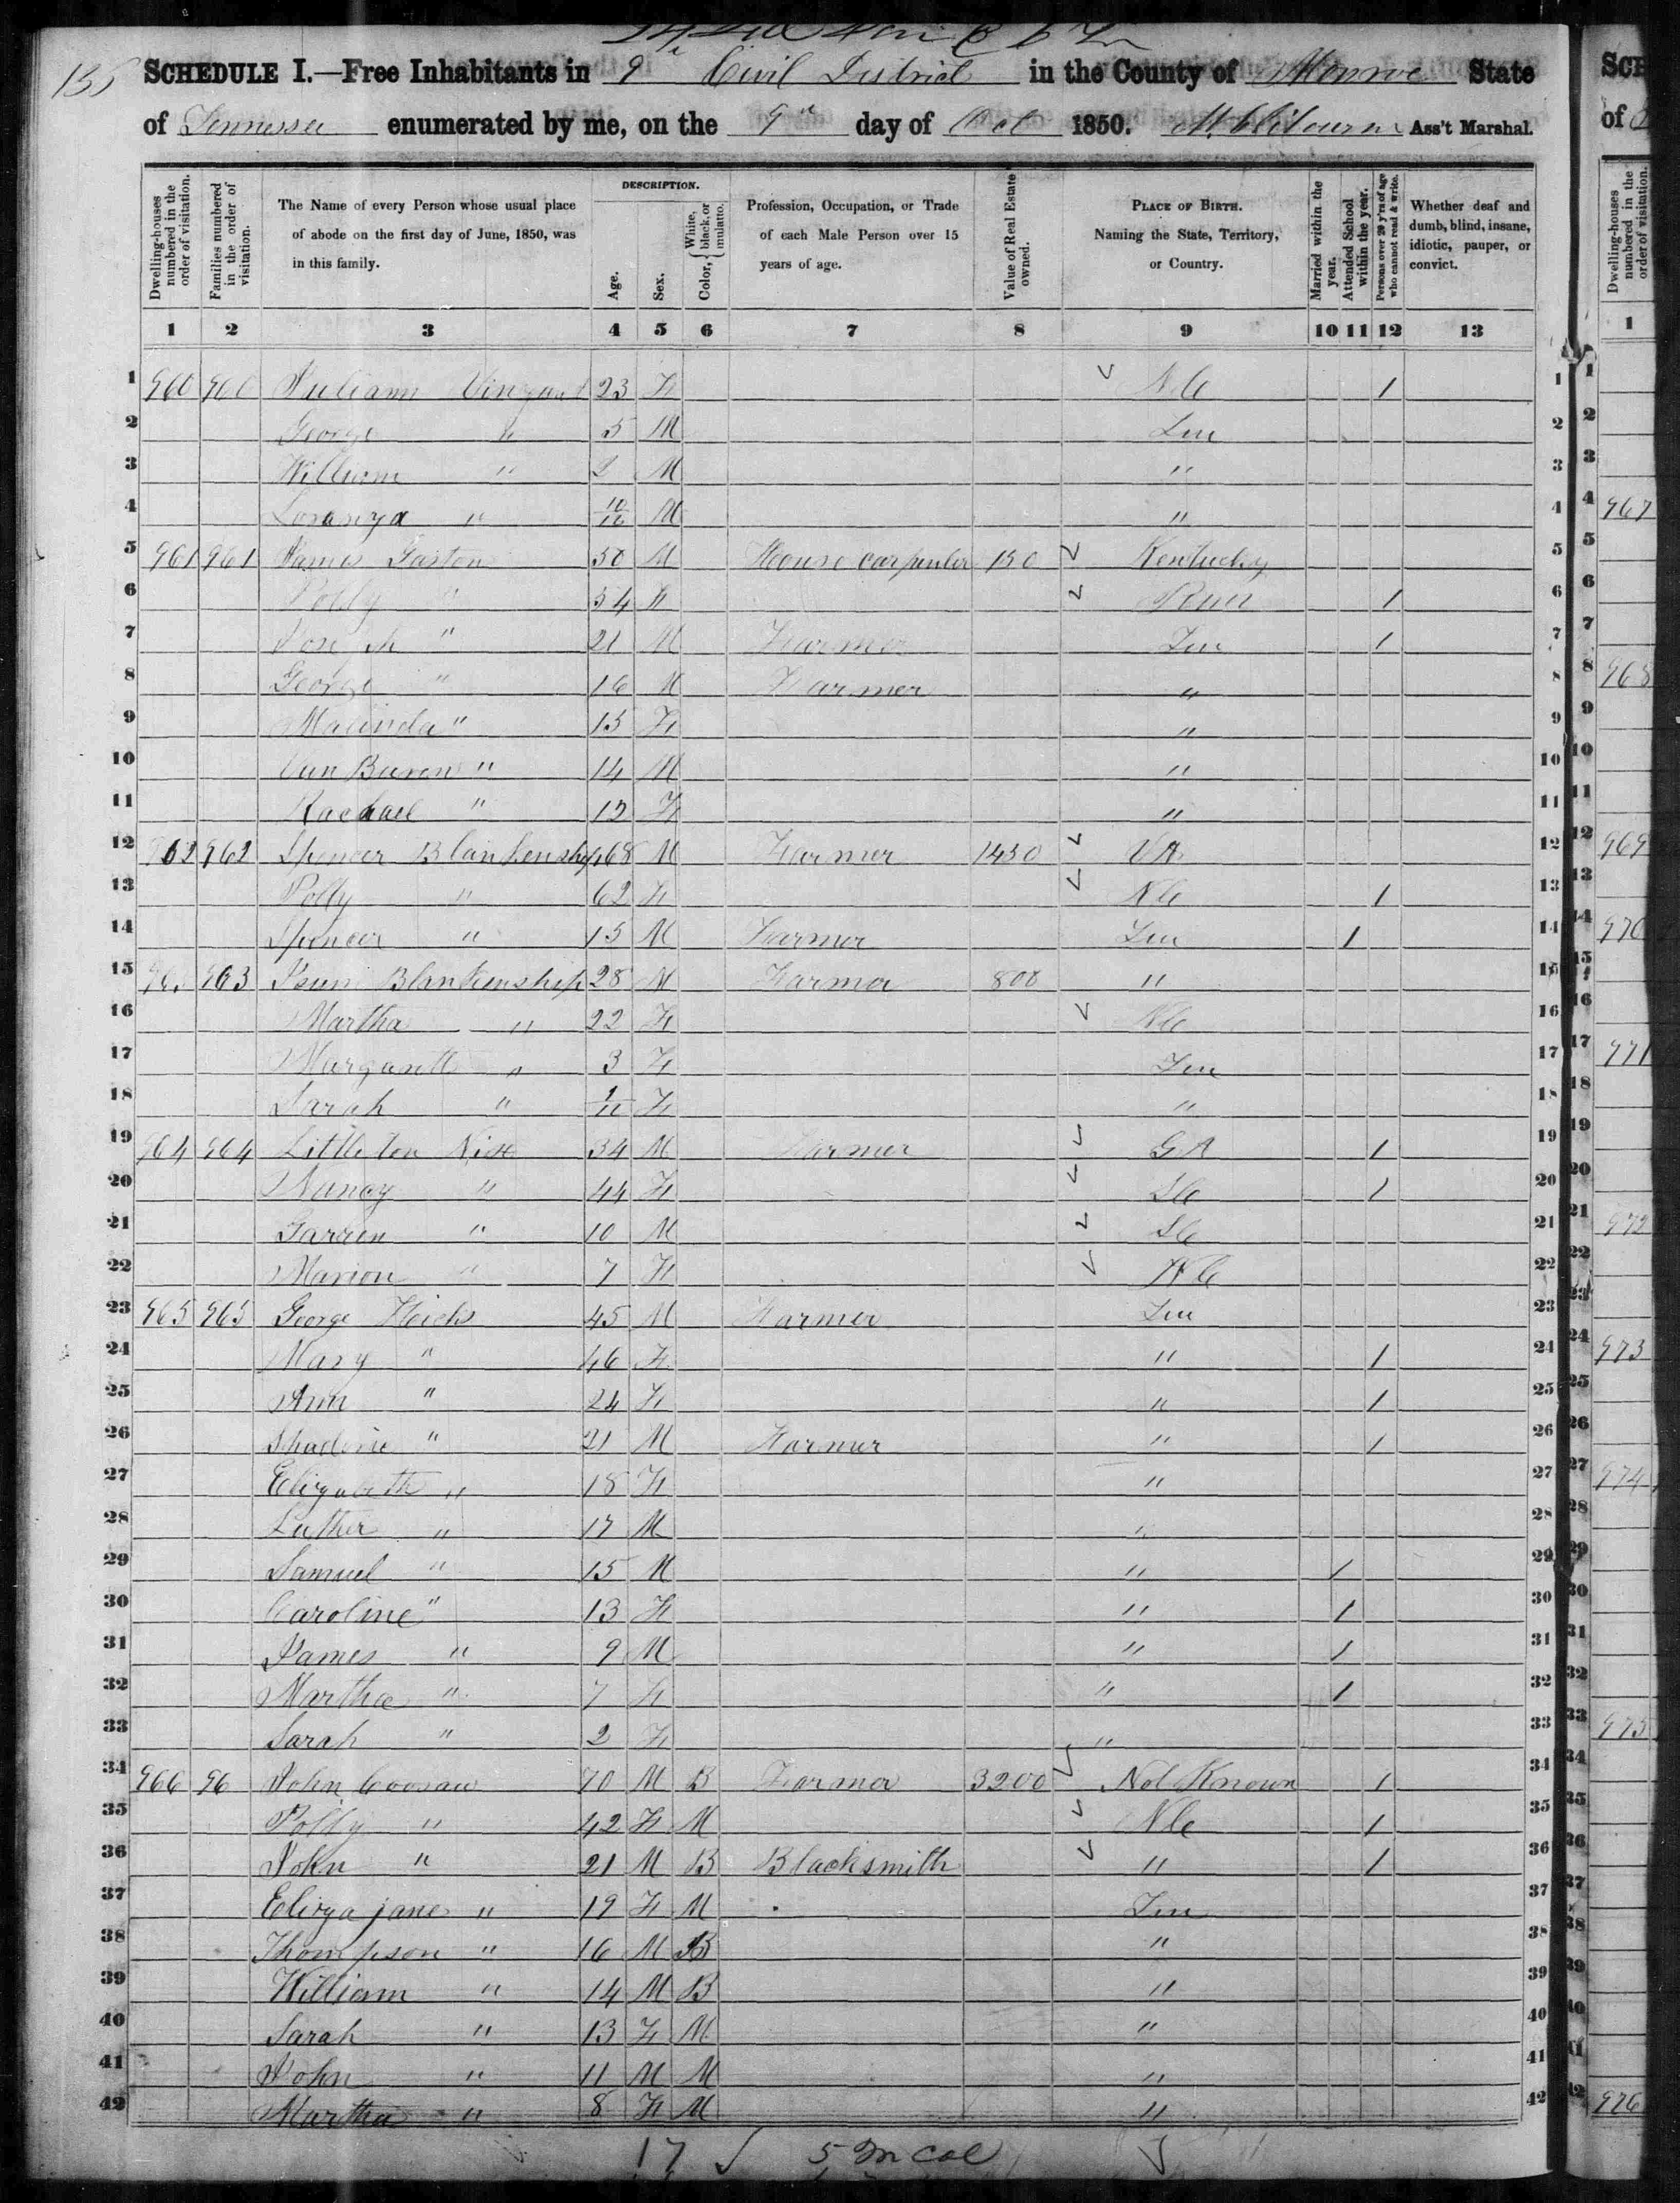 135
SCHEDULE I.—Free Inhabitants in 9 Civil District in the County of Monroe State
of Tennessee enumerated by me, on the 9th day of Oct 1850. Ass't Marshal.
Dwelling-houses numbered in the order of visitation.
Families numbered in the order of visitation.
The Name of every Person whose usual place of abode on the first day of June, 1850, was in this family.
DESCRIPTION.
Age.
Sex.
Color, { White, black, or mulatto.
Profession, Occupation, or Trade of each Male Person over 15 years of age.
Value of Real Estate owned.
PLACE OF BIRTH. Naming the State, Territory, or Country.
Married within the year.
Attended School within the year.
Persons over 20 y'rs of age who cannot read & write.
Whether deaf and dumb, blind, insane, idiotic, pauper, or convict.
1 2 3 4 5 6 7 8 9 10 11 12 13
1 960 960 Juliann 23 F NC 1 1
2 George " 5 M Ten 2
3 William " 2 M " 3
4 " 10/12 M " 4
5 961 961 James Gaston 50 M House carpenter 150 Kentucky 5
6 Polly " 54 F 1 6
7 Joseph " 21 M Farmer Ten 1 7
8 George " 16 M Farmer " 8
9 Malinda " 15 F " 9
10 Van Buren " 14 M " 10
11 Rachael " 12 F " 11
12 962 962 Spencer Blankenship 68 M Farmer 1450 VA 12
13 Polly " 62 F NC 1 13
14 Spencer " 15 M Farmer Ten 1 14
15 963 Blankenship 28 M Farmer 800 " 15
16 Martha " 22 F NC 16
17 " 3 F Ten 17
18 Sarah " F " 18
19 964 964 Littleton Nix 34 M Farmer GA 1 19
20 Nancy " 44 F SC 1 20
21 " 10 M SC 21
22 Marion " 7 F NC 22
23 965 965 George 45 M Farmer Ten 23
24 Mary " 46 F " 1 24
25 Ann " 24 F " 1 25
26 " 21 M Farmer " 1 26
27 Elizabeth " 18 F " 27
28 Luther " 17 M " 28
29 Samuel " 15 M " 1 29
30 Caroline " 13 F " 1 30
31 James " 9 M " 1 31
32 Martha " 7 F " 1 32
33 Sarah " 2 F " 33
34 966 96 John 70 M B Farmer 3200 Not Known 1 34
35 Polly " 42 F M NC 1 35
36 John " 21 M B Blacksmith " 1 36
37 Eliza jane " 19 F M Ten 37
38 Thompson " 16 M B " 38
39 William " 14 M B " 39
40 Sarah " 13 F M " 40
41 John " 11 M M " 41
42 Martha " 8 F M " 42
17 5 m col